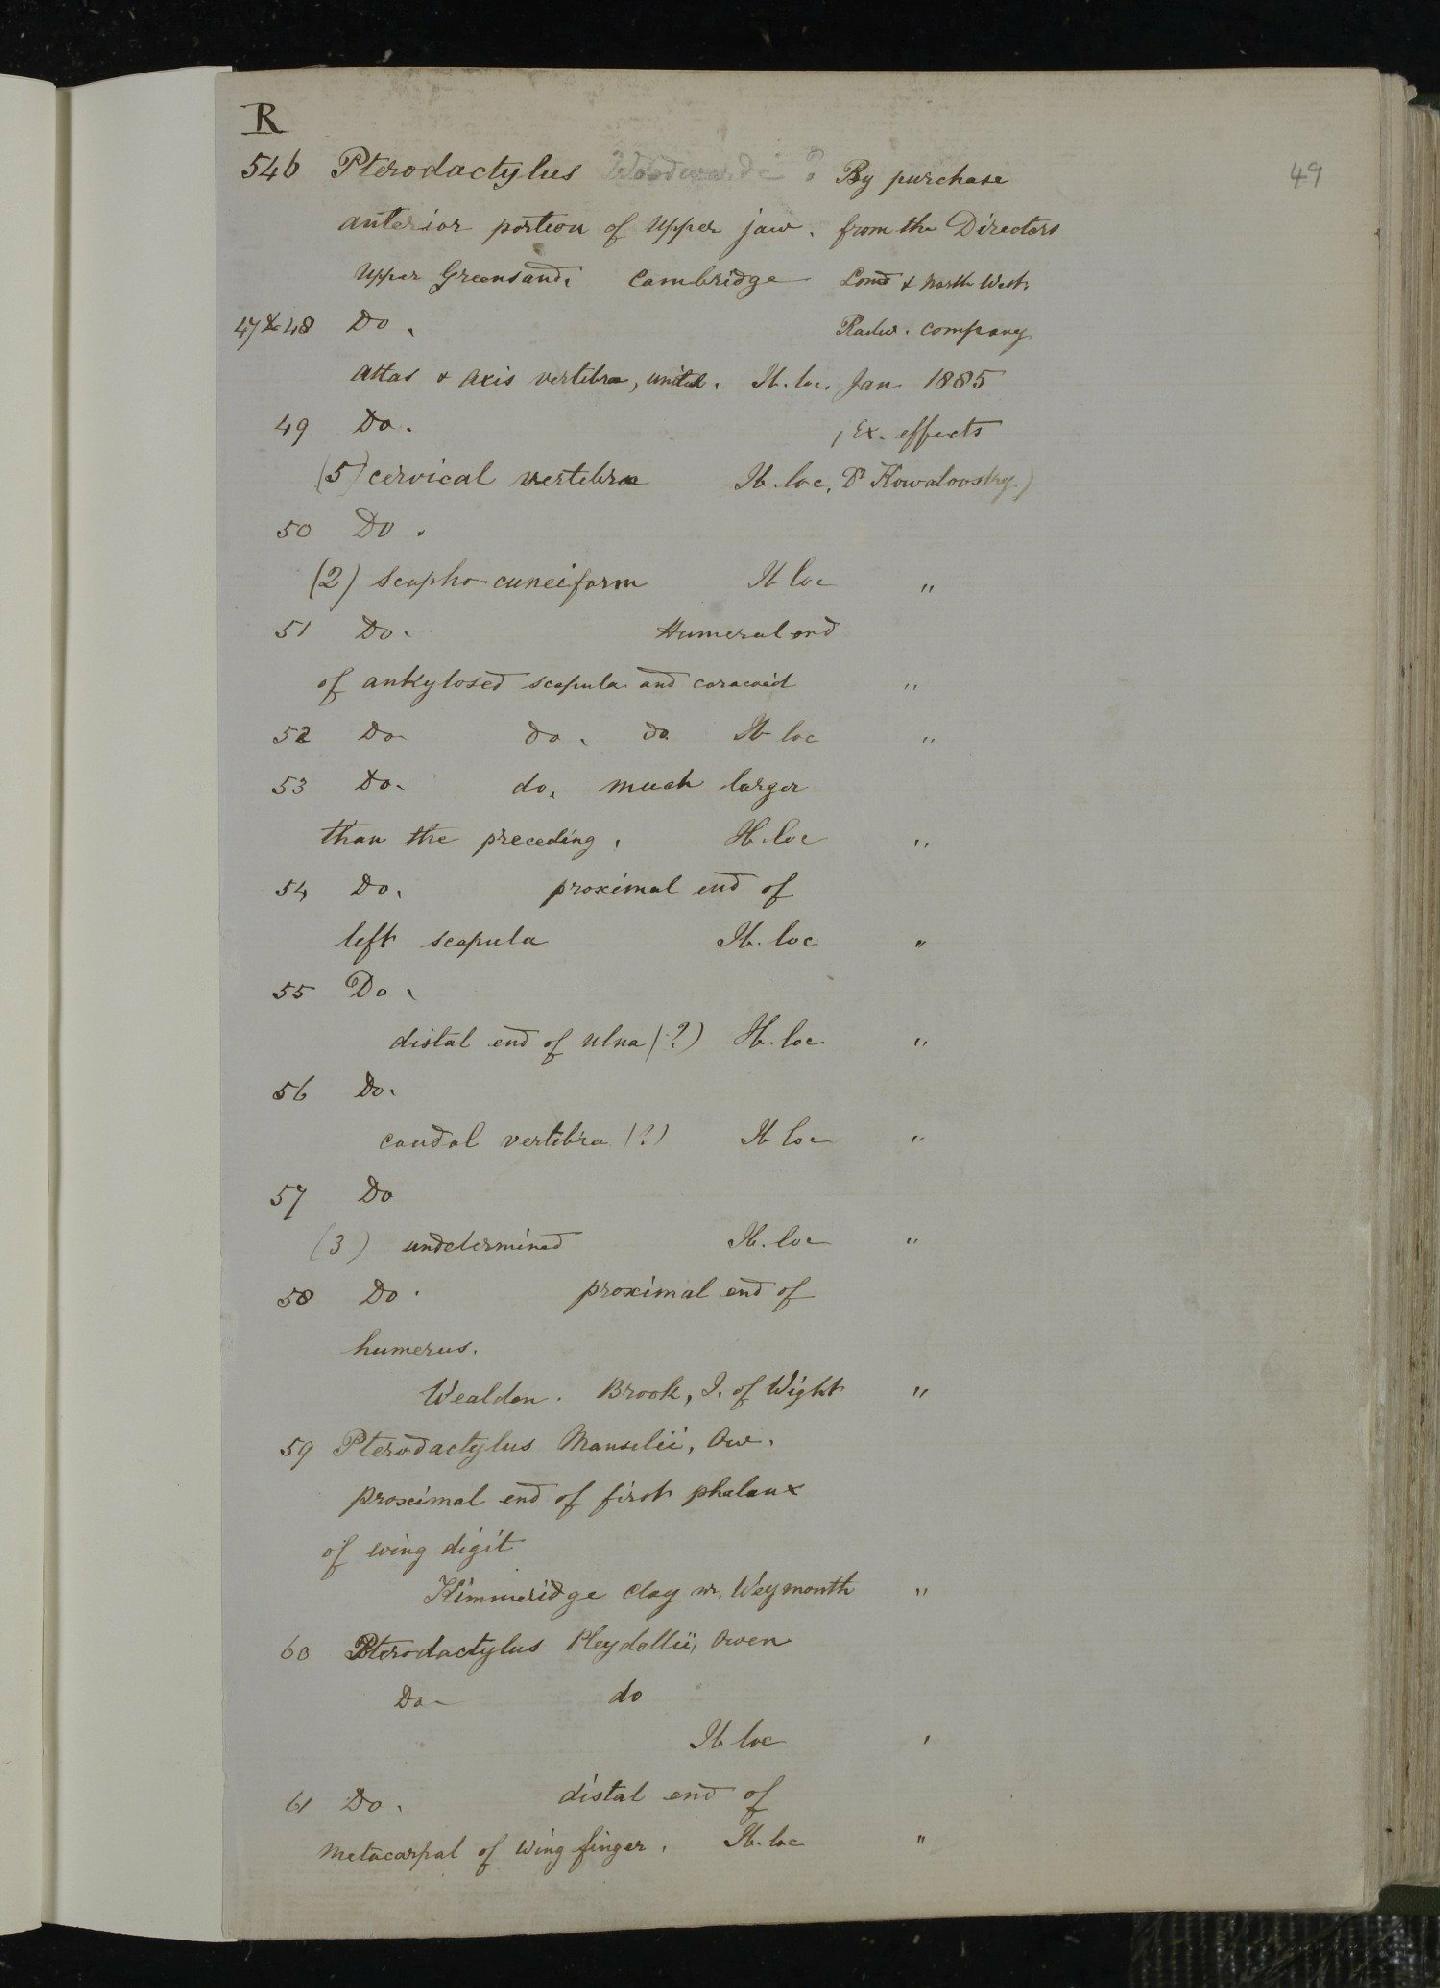 R
49
546 Pterodactylus Woodwardi ? By purchase
anterior portion of Upper jaw. from the Directors
Upper Greensand. Cambridge Lond & North West.
47 & 48 Do. Railw. company
Atlas & Axis vertebra, united. Ib. loc. Jan. 1885
49 Do. (Ex. effects
(5) cervical vertebra Ib. loc. Dr Kowalovsky.)
50 Do.
(2) scapho-cuneiform Ib loc "
51 Do. Humeral end
of ankylosed scapula and coracoid "
52 Do do. do Ib loc "
53 Do. do. much larger
than the preceding. Ib. loc "
54 Do. proximal end of
left scapula Ib. loc "
55 Do.
distal end of ulna (?) Ib. loc. "
56 Do.
caudal vertebra (?) Ib loc "
57 Do
(3) undetermined Ib. loc "
58 Do. proximal end of
humerus.
Wealden. Brook, I. of Wight "
59 Pterodactylus Manselii, Ow.
proximal end of first phalanx
of wing digit
Kimmeridge clay nr. Weymouth "
60 Pterodactylus Pleydellii, Owen
Do do
Ib loc '
61 Do. distal end of
Metacarpal of wing finger. Ib. loc "